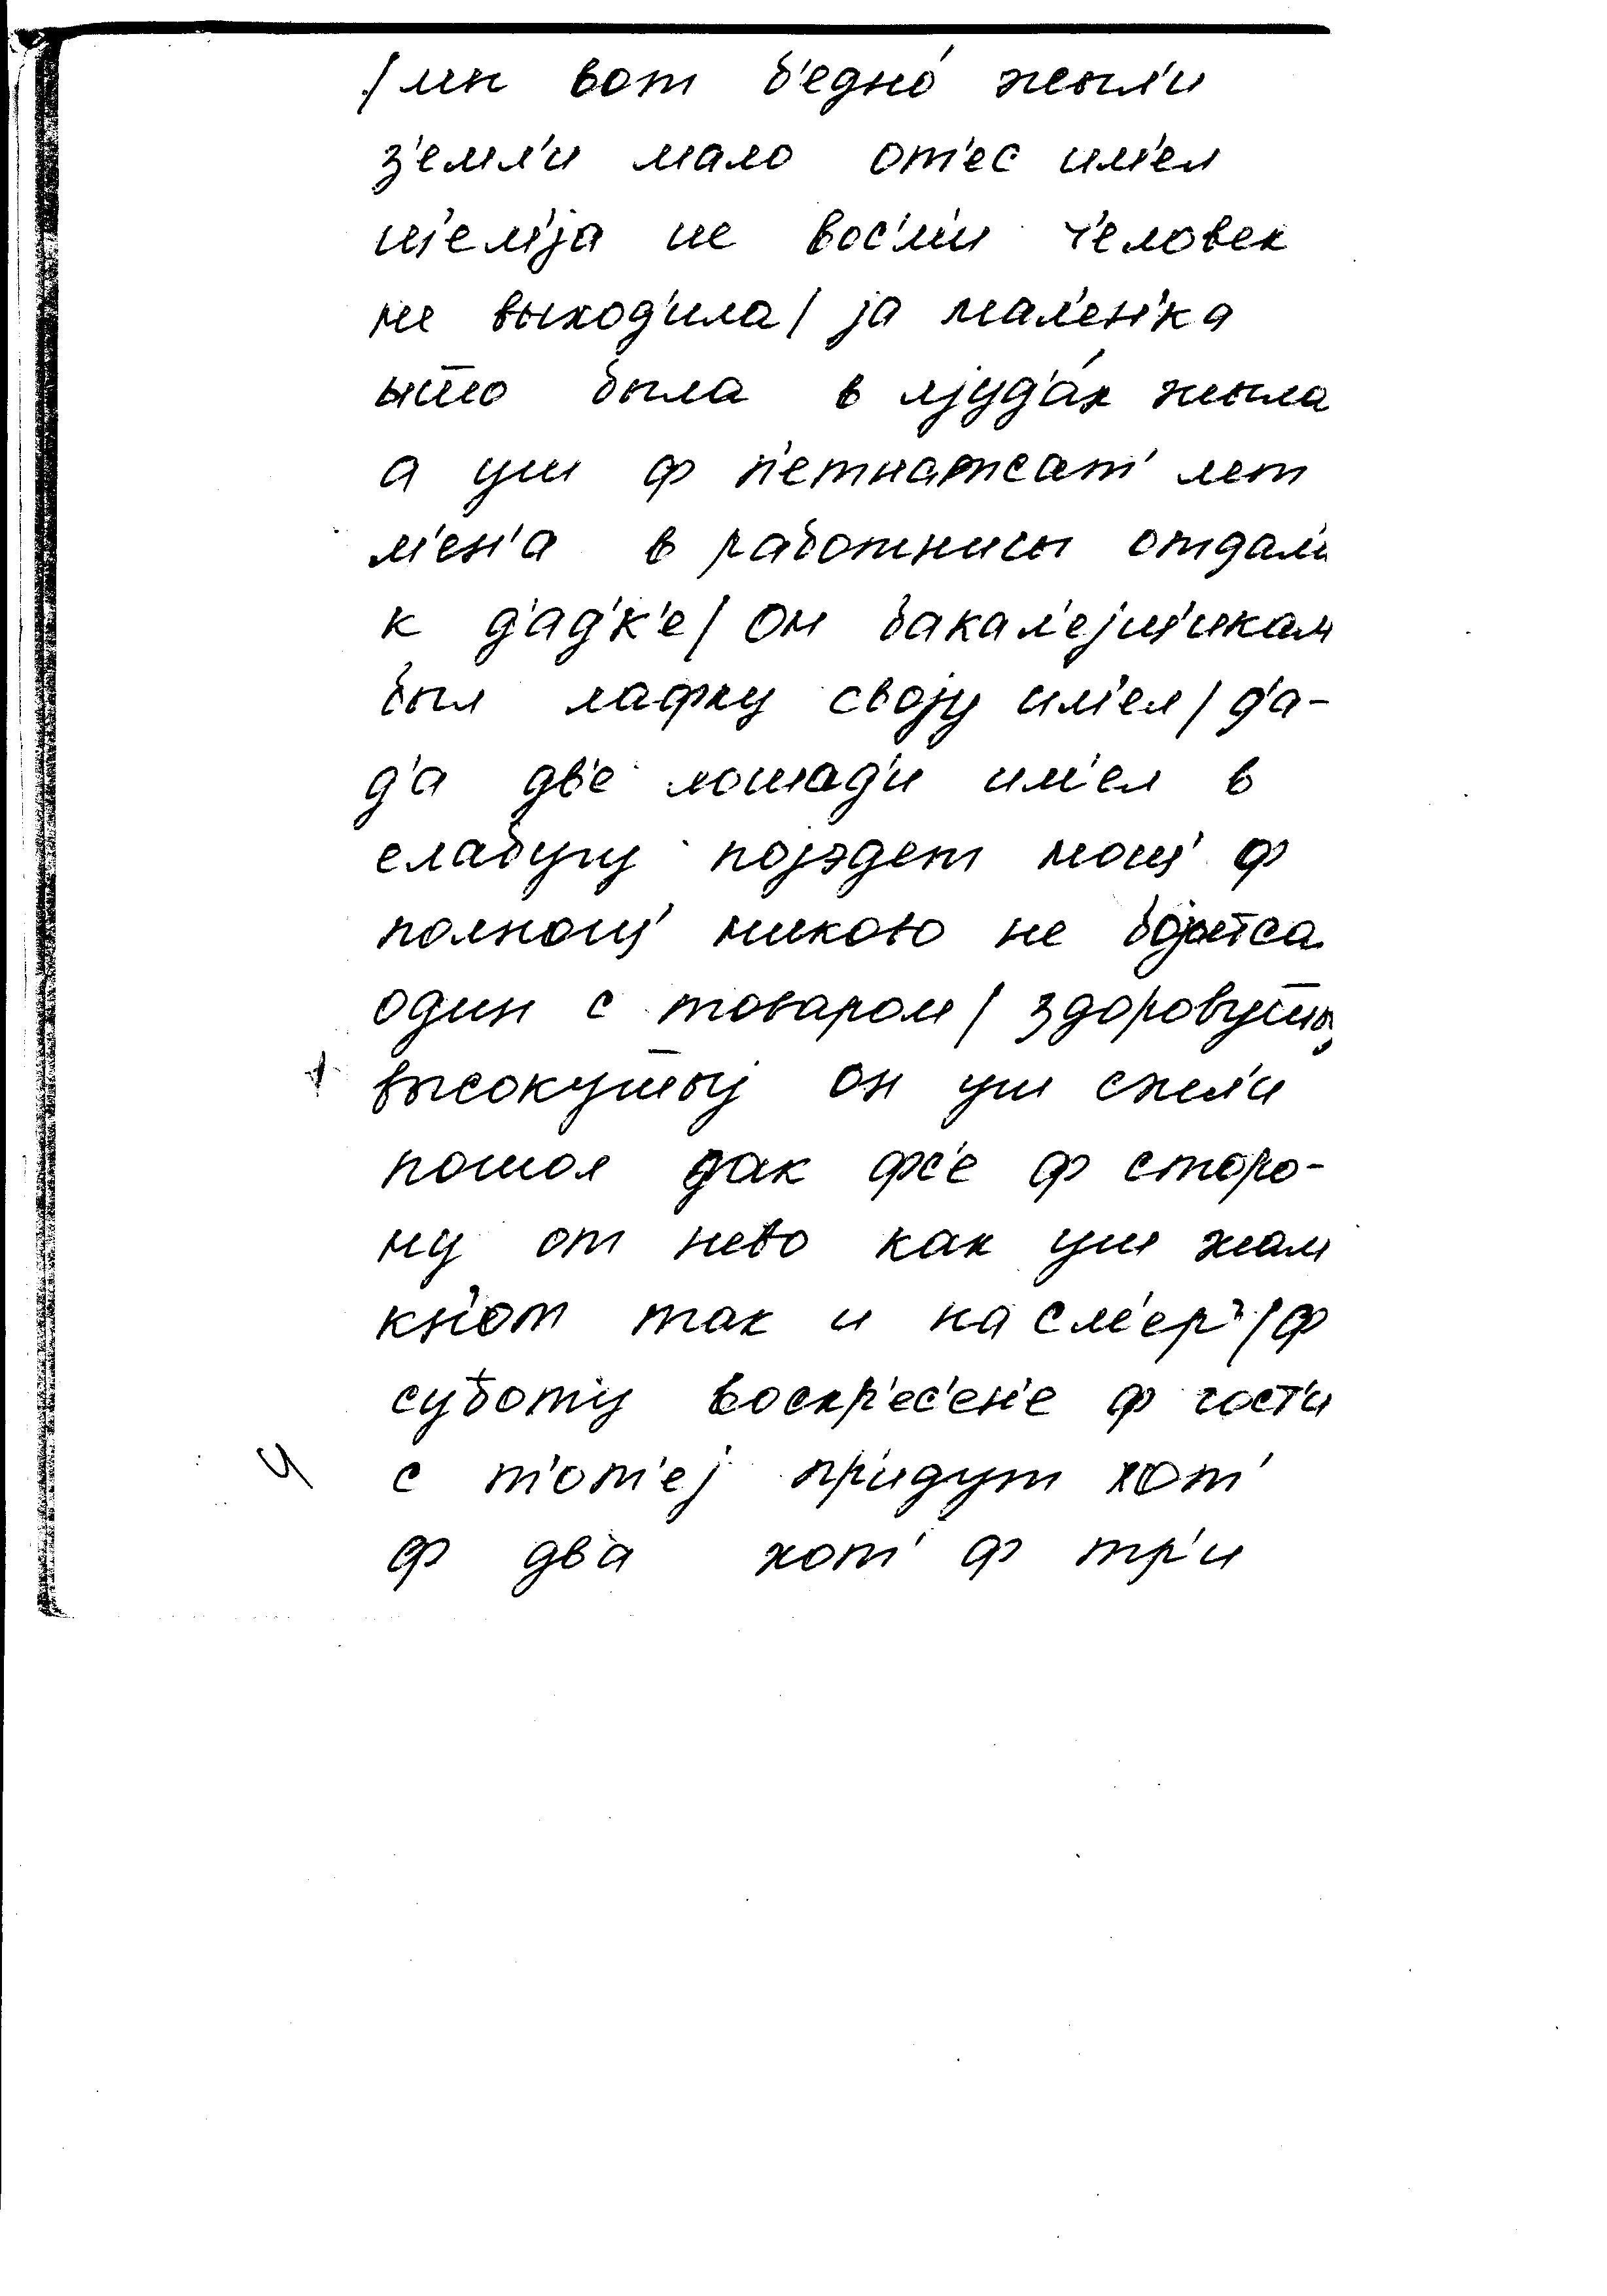 /мы вот б'едно́ жыл'и
з'емл'и мало от'ес им'ел
ш'емја ис вос'м'и ч'еловек
не выход'ила/ ја мал'ен'ка
ышо была в л'уд'а́х жыла
а уш ф п'етнатсат' лет
м'ен'а в работнисы отдал'и
к д'ад'к'е/ он бакал'ејш'икам
был лафку своју им'ел/ д'а-
д'а дв'е лошад'и им'ел в
елабугу појэдет ноч' ф
полноч' никово не бојитса
один с товаром/ здоровушшы
высокушшыј он уш сжел'и
пошол дак фс'е ф сторо-
ну от него как уш жам
кн'от так и на см'ер'/ф
суботу воскр'ес'ен'е ф гост'и
с т'от'еј пр'идут хот'
ф два хот' ф тр'и